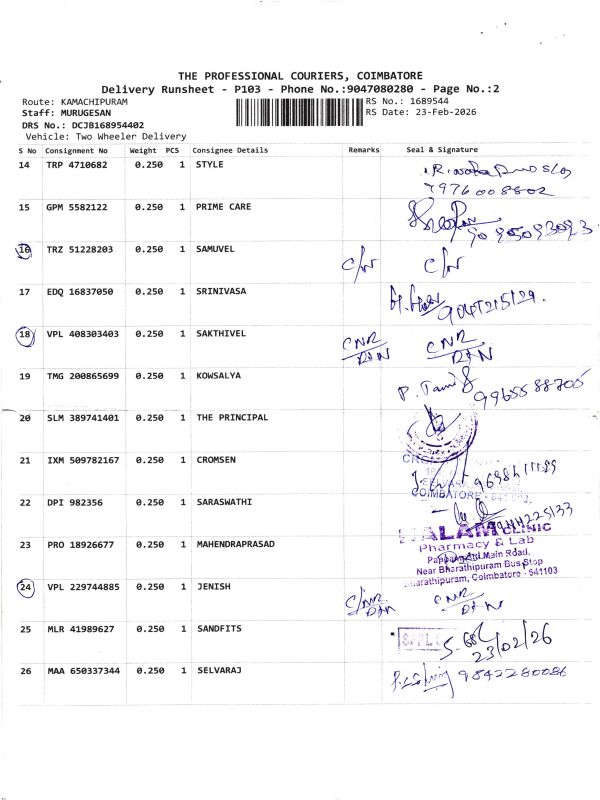 THE PROFESSIONAL COURIERS, COIMBATORE
Delivery Runsheet - P103 - Phone No.:9047080280 - Page No.:2
Route: KAMACHIPURAM
RS No.: 1689544
Staff: MURUGESAN
RS Date: 23-Feb-2026
DRS No.: DCJB168954402
Vehicle: Two Wheeler Delivery
S No Consignment No Weight PCS Consignee Details Remarks Seal & Signature
14 TRP 4710682 0.250 1 STYLE
7976008802
15 GPM 5582122 0.250 1 PRIME CARE
16 TRZ 51228203 0.250 1 SAMUVEL C/N C/N
17 EDQ 16837050 0.250 1 SRINIVASA
18 VPL 408303403 0.250 1 SAKTHIVEL CNR CNR
19 TMG 200865699 0.250 1 KOWSALYA
P. Tamil 9965588705
20 SLM 389741401 0.250 1 THE PRINCIPAL
21 IXM 509782167 0.250 1 CROMSEN
COIMBATORE
22 DPI 982356 0.250 1 SARASWATHI
9944225133
23 PRO 18926677 0.250 1 MAHENDRAPRASAD
CLINIC
Pharmacy & Lab
Main Road,
Near Bharathipuram Bus Stop
Bharathipuram, Coimbatore - 641103
24 VPL 229744885 0.250 1 JENISH CNR CNR
25 MLR 41989627 0.250 1 SANDFITS
23/02/26
26 MAA 650337344 0.250 1 SELVARAJ 9842280086